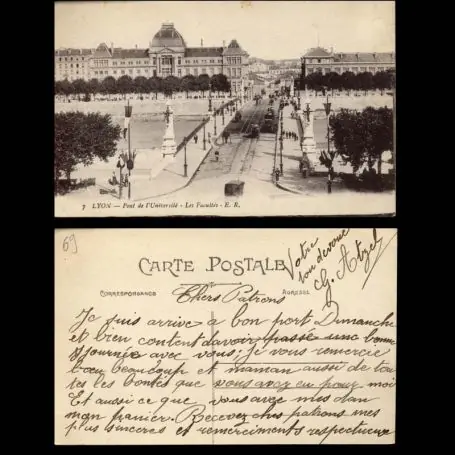 7 LYON. — Pont de l'Université - Les Facultés - E. R.
69
CARTE POSTALE
CORRESPONDANCE
ADRESSE
Votre
bon devoué
G. Atzel
Chers Patrons
Je suis arrive a bon port Dimanche
et bien content davoir passé une bonne
journie avec vous; je vous remercie
bœu beaucoup et maman aussi de tou
tes les bontés que vous avez eu pour moi
Et aussi ce que vous avec mes dan
mon panier. Recevez chers patrons mes
plus sinceres et remerciments respectueux